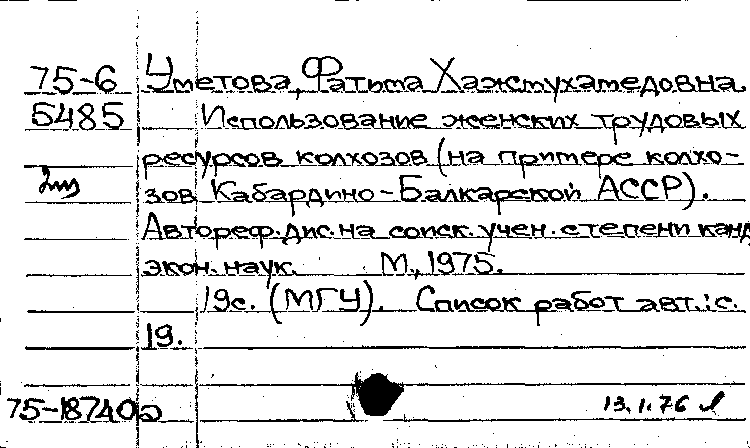 75-6 Уметова, Фатима Хажмухамедовна.
5485 Использование женских трудовых
ресурсов колхозов (на примере колхо-
зов Кабардино-Балкарской АССР).
Автореф.дис.на соиск.учен.степени канд
экон.наук. М.,1975.
19с. (МГУ). Список работ авт.:с.
19.
75-18740а 13.1.76